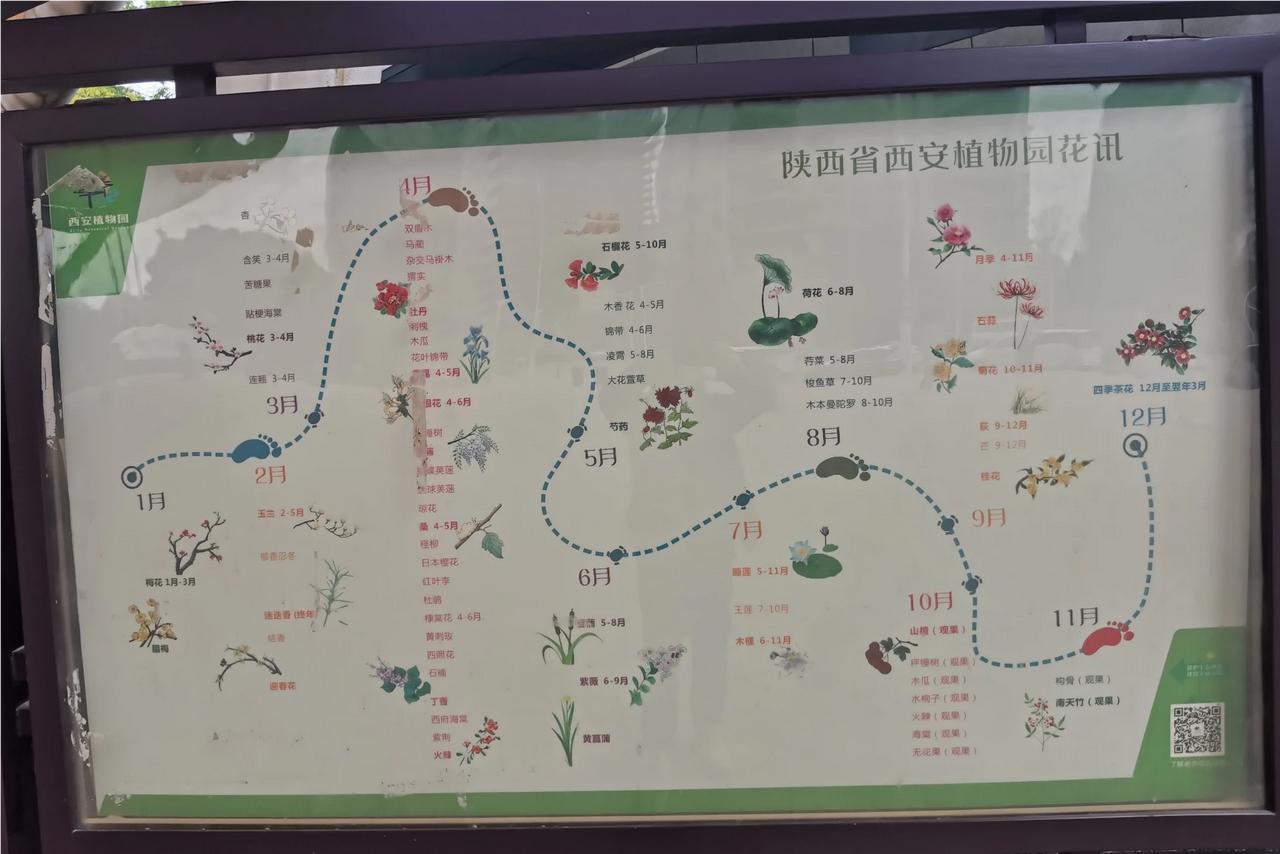 陕西省西安植物园花讯
西安植物园
Xi'an Botanical Garden
1月
梅花 1月-3月
蜡梅
2月
玉兰 2-5月
郁香忍冬
迷迭香 (终年
结香
迎春花
3月
香
含笑 3-4月
苦糖果
贴梗海棠
桃花 3-4月
连翘 3-4月
4月
双盾木
马蔺
杂交马褂木
猬实
牡丹
刺槐
木瓜
花叶锦带
4-5月
花 4-6月
树
荚蒾
球荚蒾
琼花
桑 4-5月
柽柳
日本樱花
红叶李
杜鹃
棣棠花 4-6月
黄刺玫
四照花
石楠
丁香
西府海棠
紫荆
火棘
5月
石榴花 5-10月
木香花 4-5月
锦带 4-6月
凌霄 5-8月
大花萱草
芍药
6月
5-8月
紫薇 6-9月
黄菖蒲
7月
睡莲 5-11月
王莲 7-10月
木槿 6-11月
8月
荷花 6-8月
荇菜 5-8月
梭鱼草 7-10月
木本曼陀罗 8-10月
9月
月季 4-11月
石蒜
菊花 10-11月
荻 9-12月
芒 9-12月
桂花
10月
山楂（观果）
秤锤树（观果）
木瓜（观果）
水栒子（观果）
火棘（观果）
海棠（观果）
无花果（观果）
11月
枸骨（观果）
南天竹（观果）
12月
四季茶花 12月至翌年3月